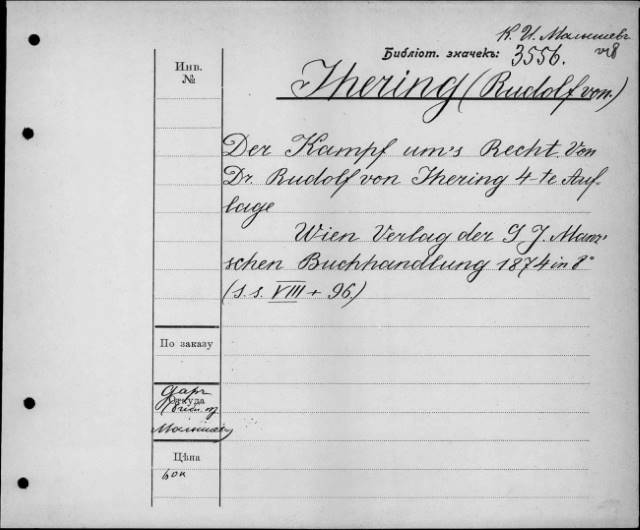 К. И. Малышевъ
Библіот. значекъ: 3556.
Инв.
№
Ihering (Rudolf von.)
Der Kampf um's Recht. Von
Dr. Rudolf von Ihering 4-te Auf-
lage
Wien Verlag der G J. Manz'
schen Buchhandlung 1874 in 8°
(S. s. VIII + 96.)
По заказу
Откуда
даръ
Малышевъ
Цѣна
60к